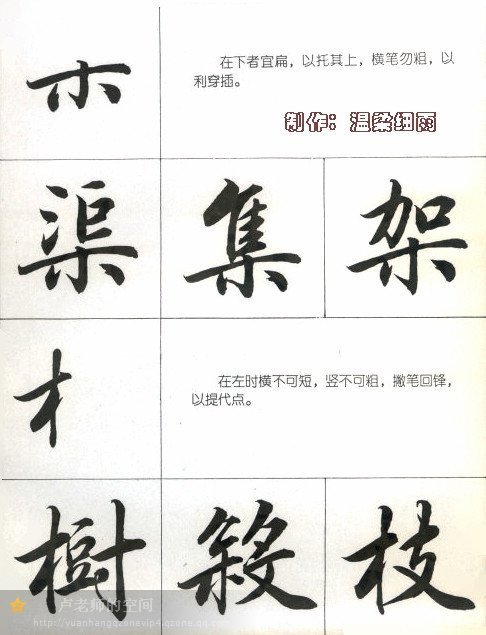 木
在下者宜扁，以托其上，横笔勿粗，以
利穿插。
制作：温柔细丽
渠 集 架
木
在左时横不可短，竖不可粗，撇笔回锋，
以提代点。
樹 枝
卢老师的空间
http://yuanhangqzonevip4.qzone.qq.com